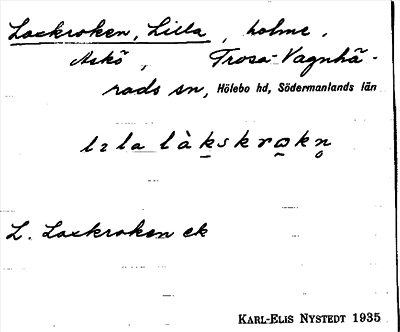 Laxkroken, Lilla, holme.
Askö, Trosa-Vagnhä-
rads sn, Hölebo hd, Södermanlands län
lɪla làkskrωkn̥
L. Laxkroken ek
KARL-ELIS NYSTEDT 1935